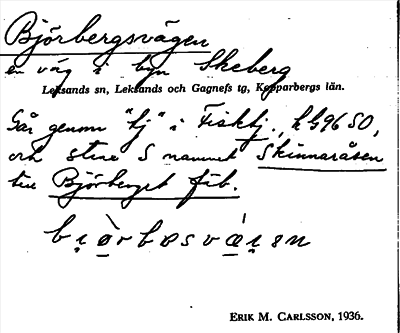 Björbergsvägen
en väg i byn Skeberg
Leksands sn, Leksands och Gagnefs tg, Kopparbergs län.
Går genom "tj" i Fisktj., h G96 SO,
och stere S nammet Skinnaråsen
till Björberget fäb.
bi̯òrbæsvǽi̯en
ERIK M. CARLSSON, 1936.